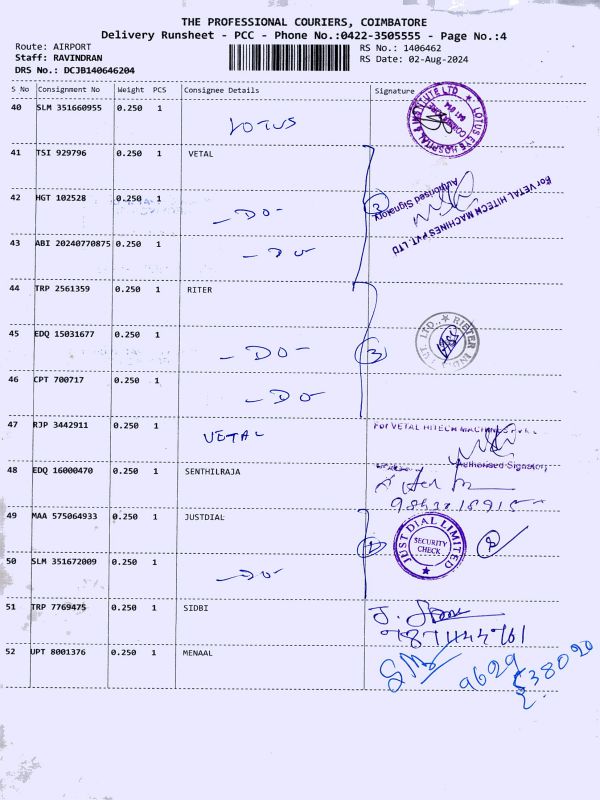 THE PROFESSIONAL COURIERS, COIMBATORE
Delivery Runsheet - PCC - Phone No.:0422-3505555 - Page No.:4
Route: AIRPORT
RS No.: 1406462
Staff: RAVINDRAN
RS Date: 02-Aug-2024
DRS No.: DCJB140646204
S No Consignment No Weight PCS Consignee Details Signature
40 SLM 351660955 0.250 1 LOTUS
LOTUS EYE HOSPITAL & INSTITUTE LTD.
41 TSI 929796 0.250 1 VETAL
42 HGT 102528 0.250 1 -DO- 3
For VETAL HITECH MACHINES PVT. LTD
Authorised Signatory
43 ABI 20240770875 0.250 1 -DO-
44 TRP 2561359 0.250 1 RITER
45 EDQ 15031677 0.250 1 -DO- 3
46 CPT 700717 0.250 1 -DO-
47 RJP 3442911 0.250 1 VETAL
For VETAL HITECH
Authorised Signatory
48 EDQ 16000470 0.250 1 SENTHILRAJA
49 MAA 575064933 0.250 1 JUSTDIAL
JUST DIAL LIMITED
SECURITY
CHECK
50 SLM 351672009 0.250 1 -DO-
51 TRP 7769475 0.250 1 SIDBI
52 UPT 8001376 0.250 1 MENAAL